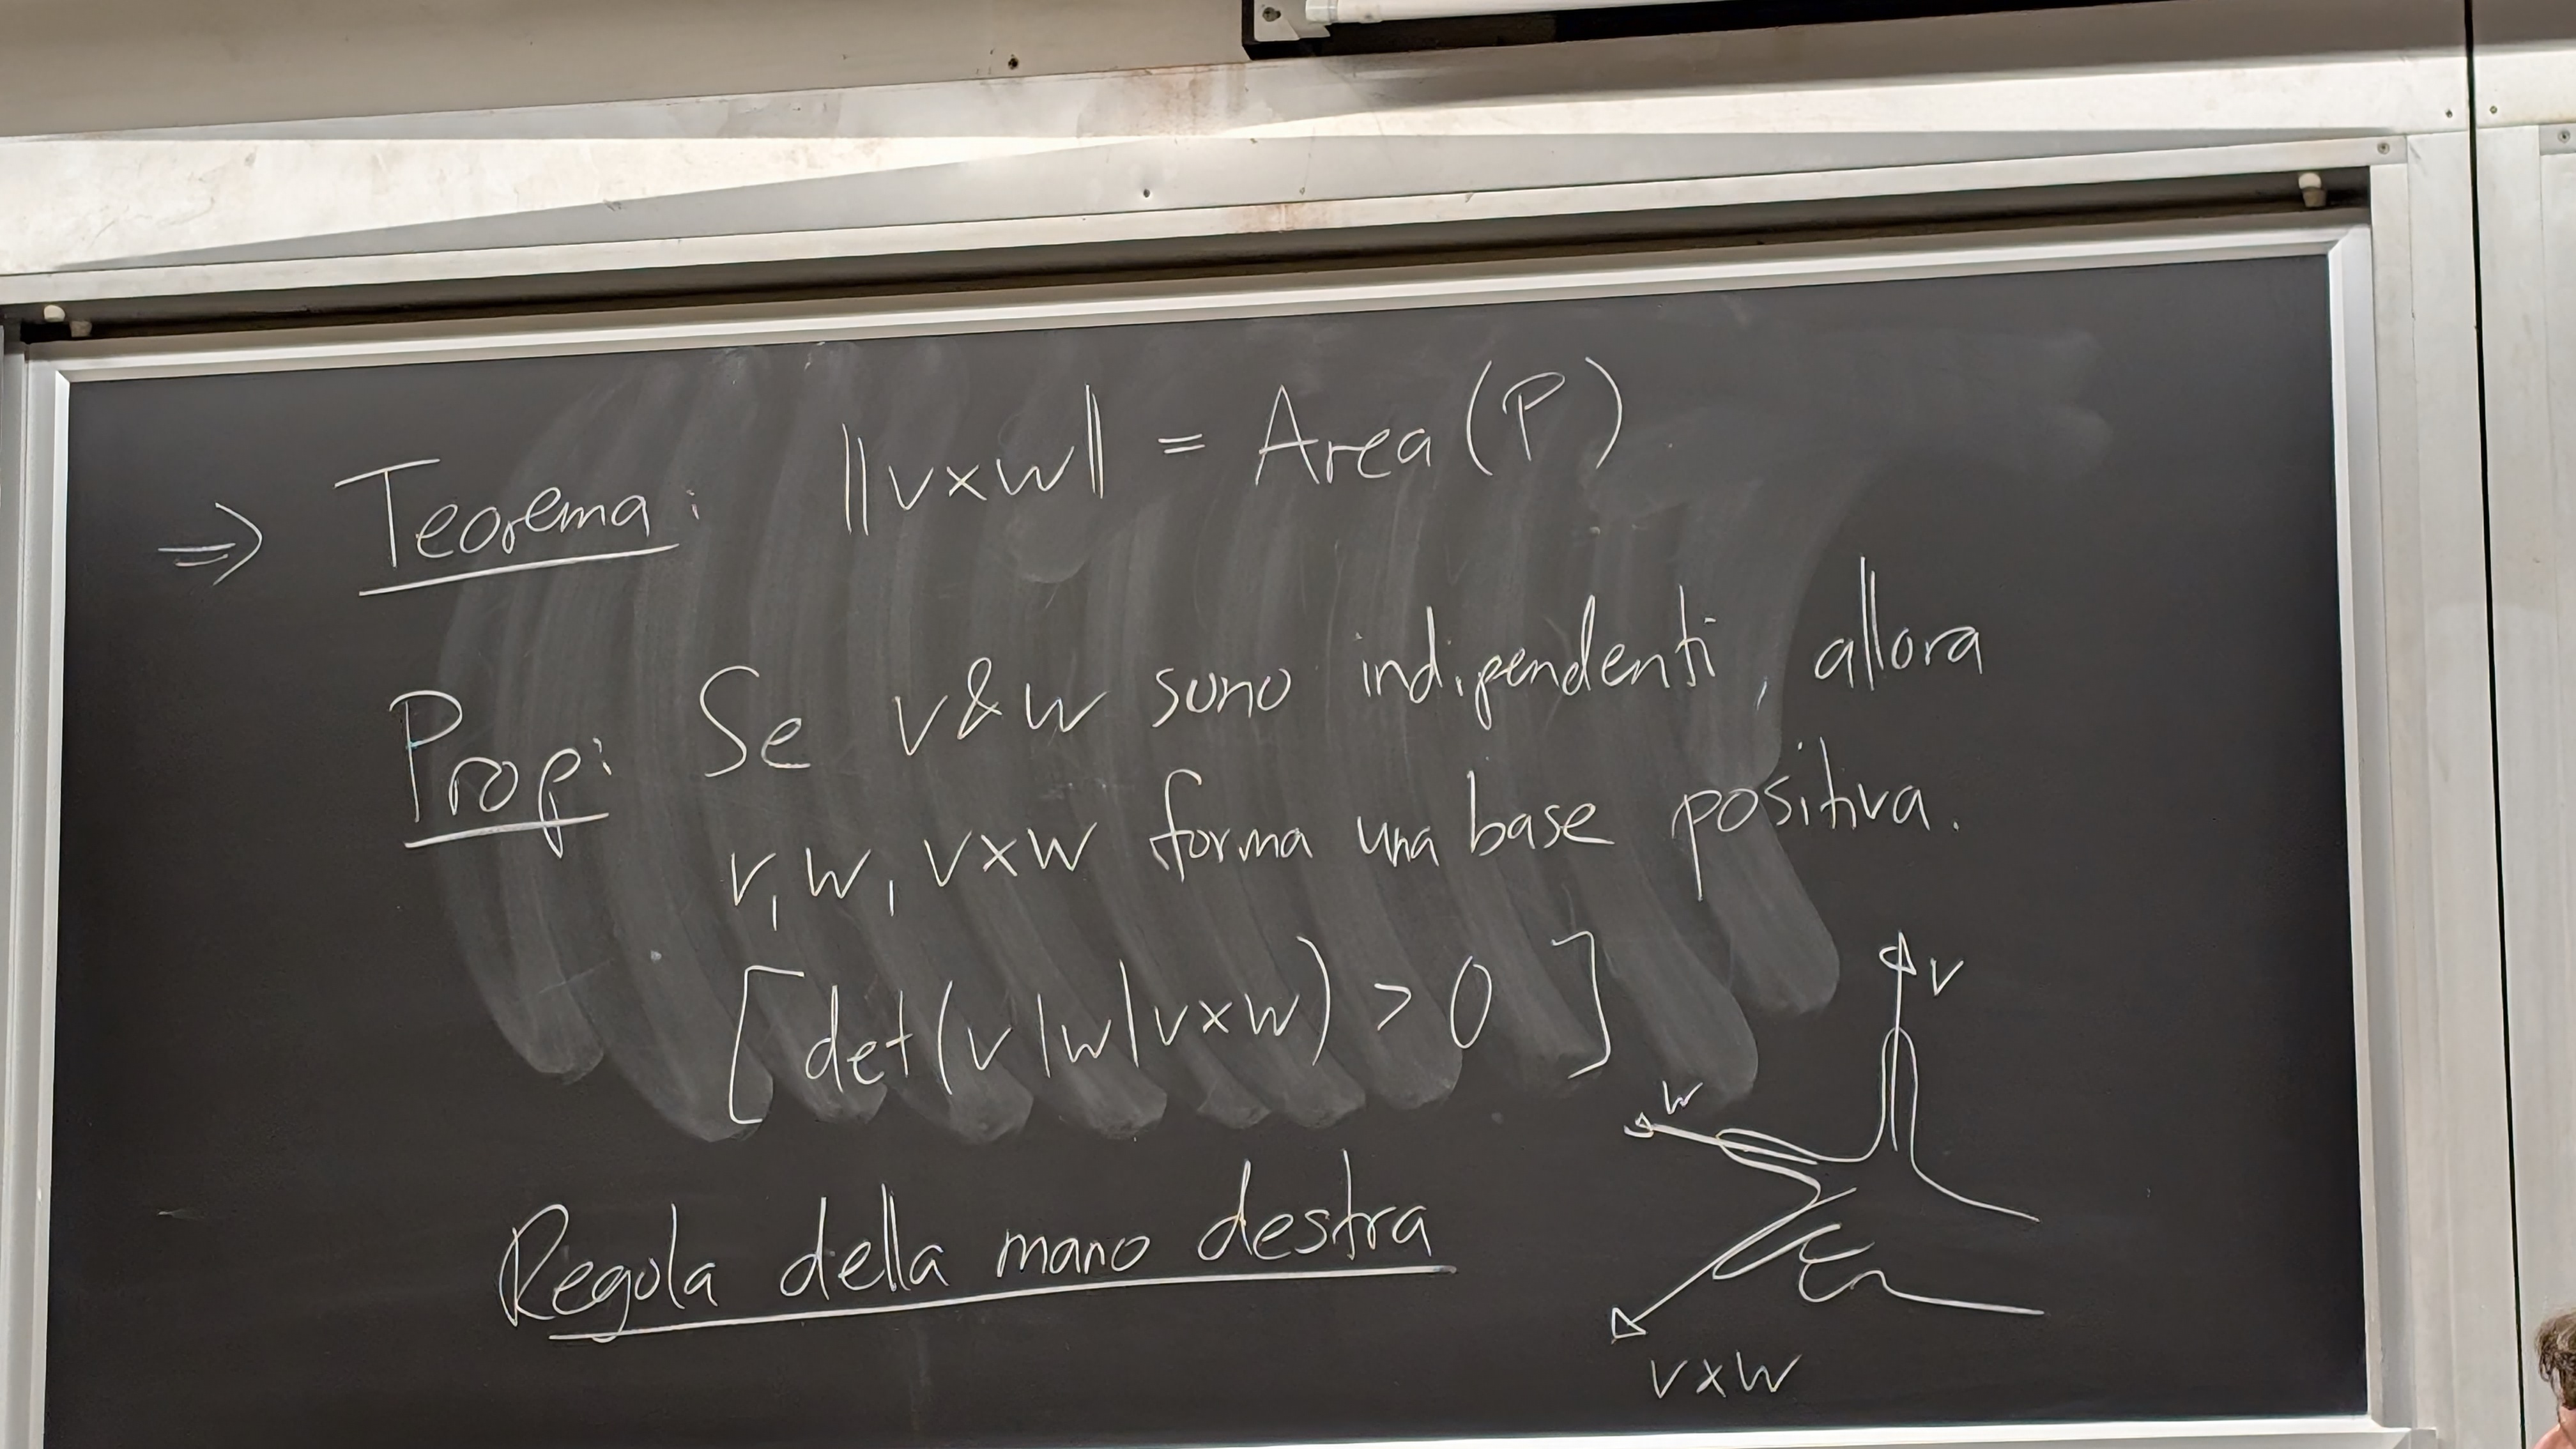 ⇒ Teorema: ||v×w|| = Area(P)
Prop: Se v & w sono indipendenti, allora
v, w, v×w forma una base positiva.
[det(v|w|v×w) > 0]
v
w
Regola della mano destra
v×w